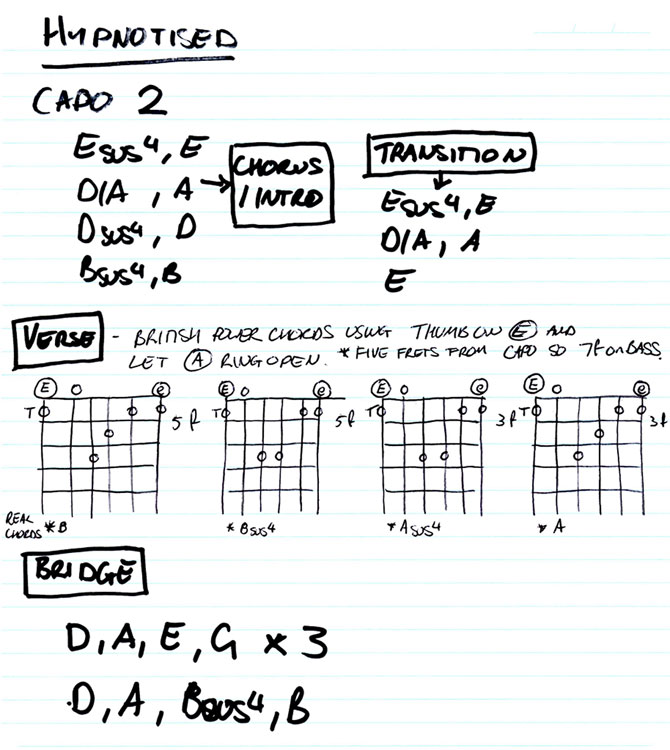 HYPNOTISED
CAPO 2
Esus4, E
D/A , A → CHORUS / INTRO
Dsus4, D
Bsus4, B
TRANSITION
Esus4, E
D/A, A
E
VERSE - BRITISH POWER CHORDS USING THUMB ON E AND
LET A RING OPEN. * FIVE FRETS FROM CAPO SO 7f ON BASS
E O e E O e E O e E O e
T 5f T 5f T 3f T 3f
REAL CHORDS * B * Bsus4 * Asus4 * A
BRIDGE
D, A, E, G x 3
D, A, Bsus4, B